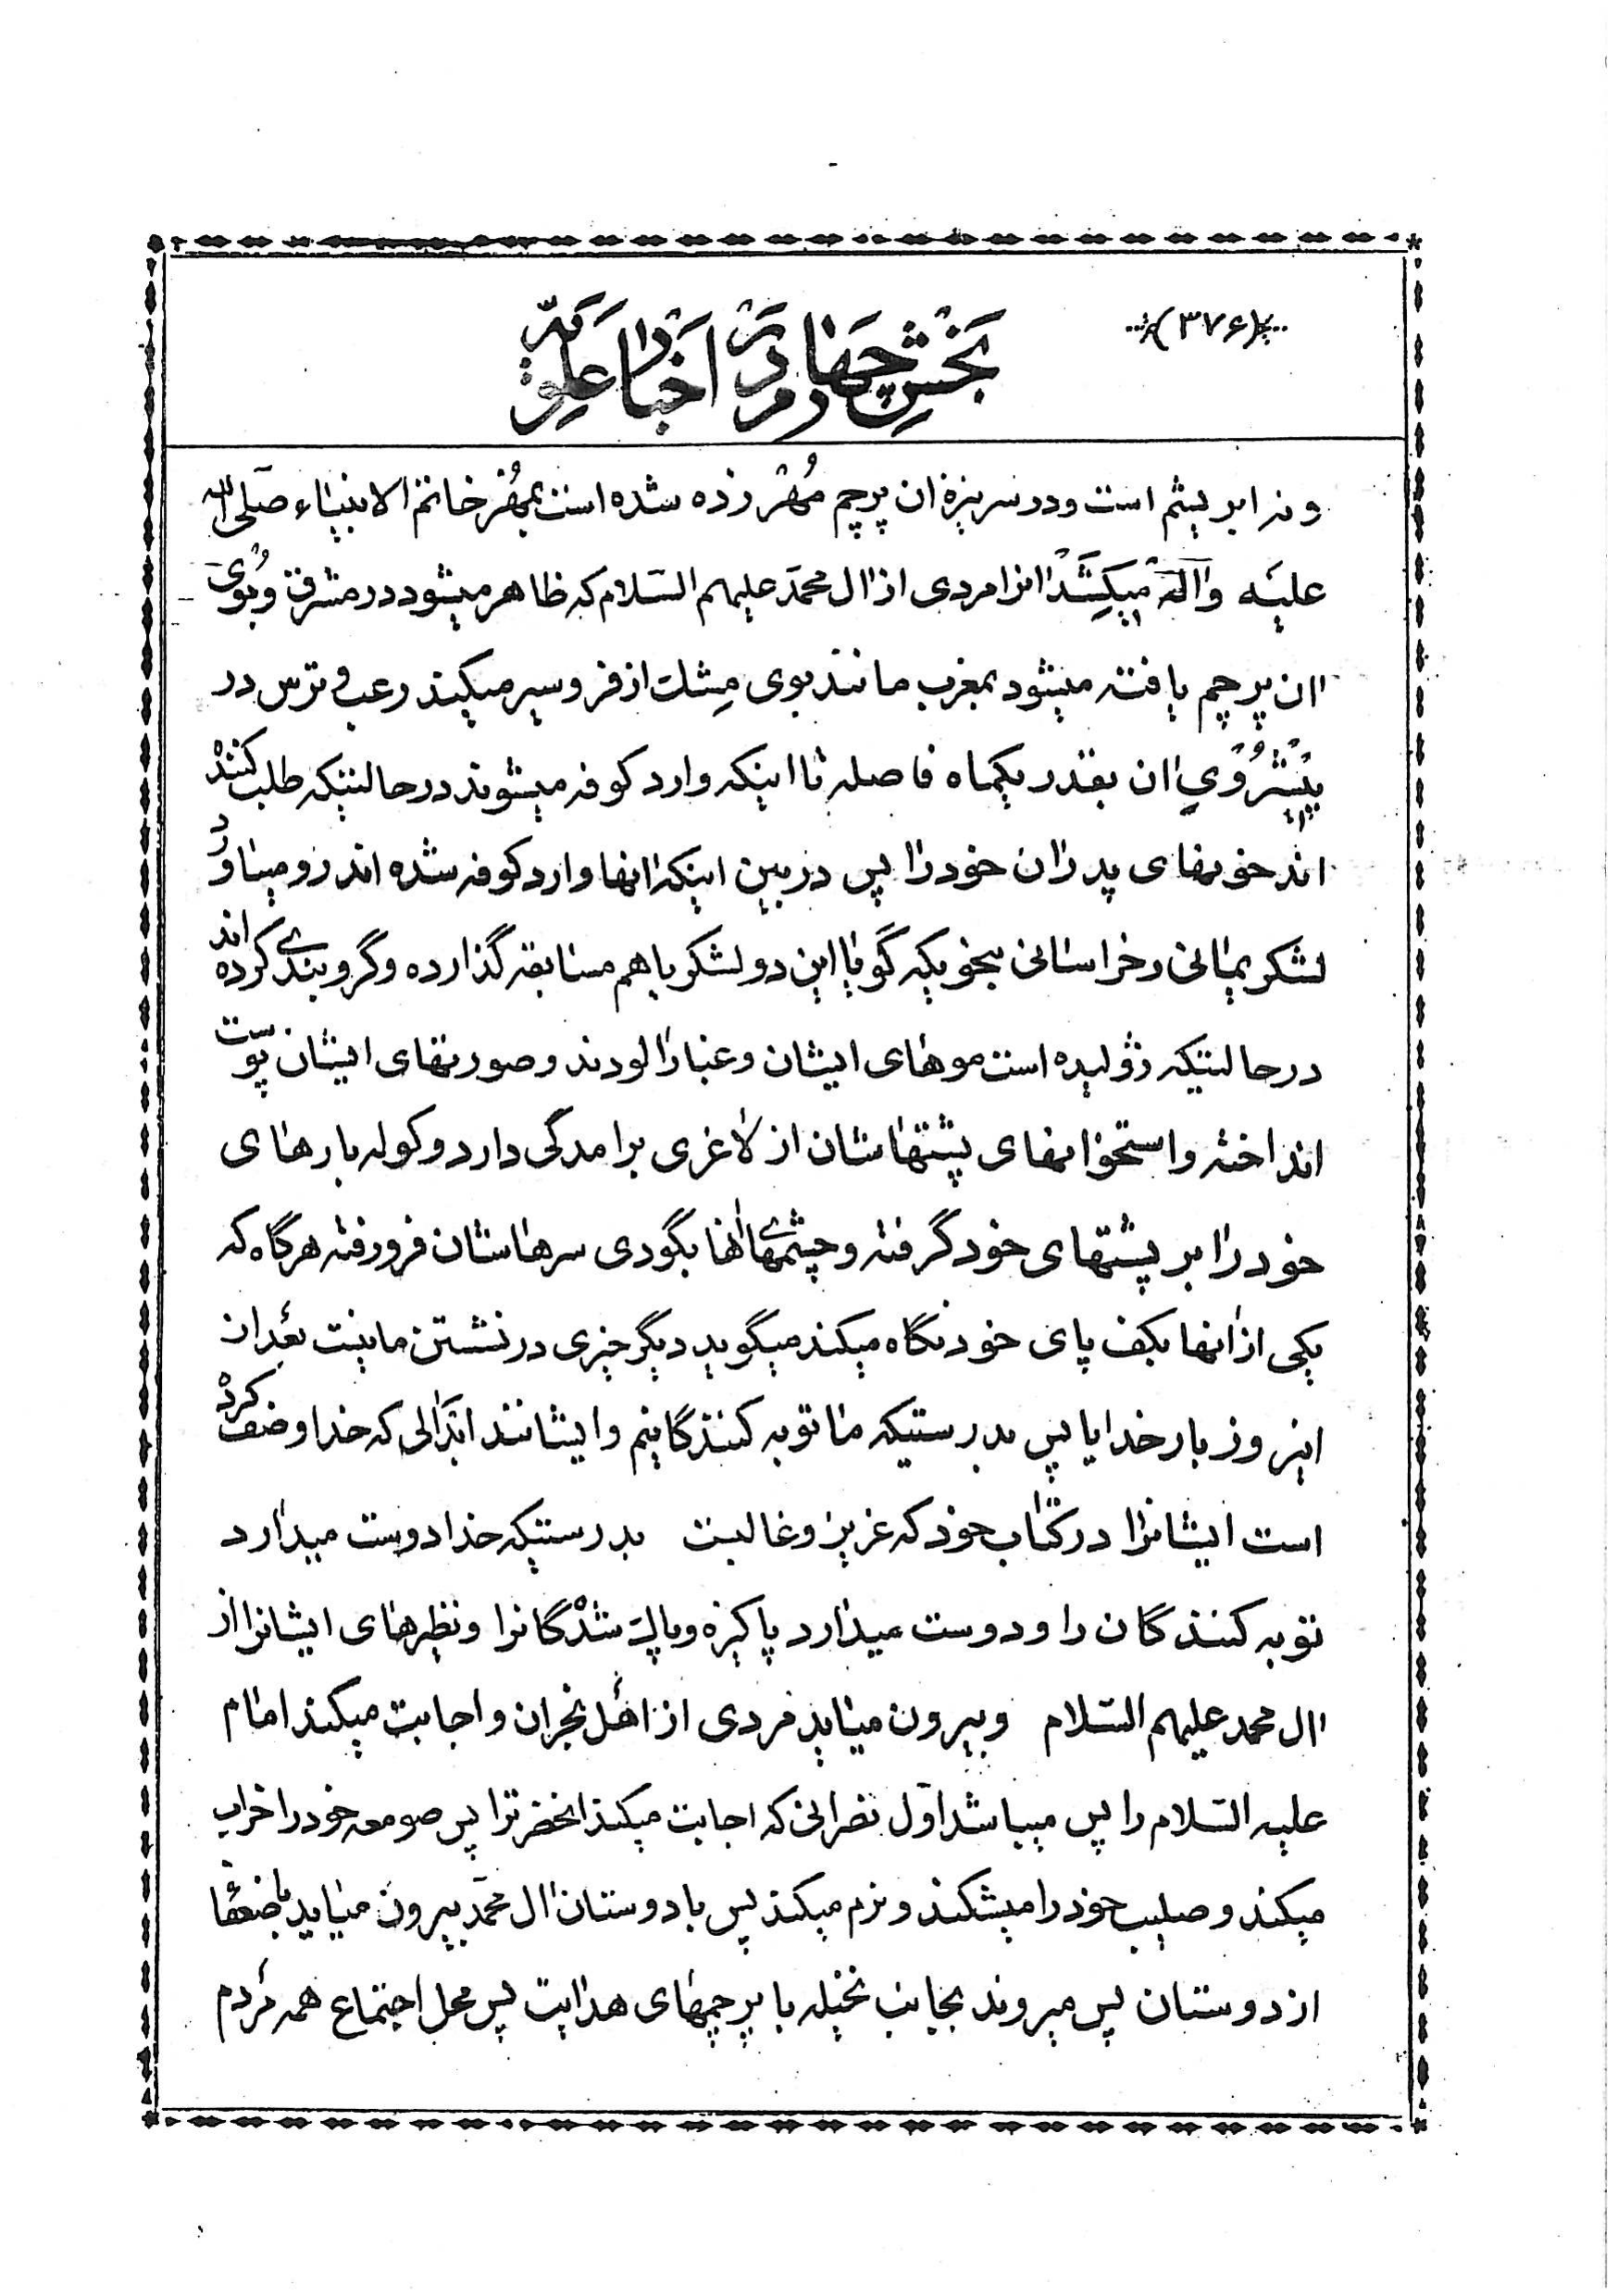 (۳۷۶)
بخش چهارم در اخبار علویه
و نه ابریشم است و در سر نیزه ان پرچم مُهر زده شده است بمُهر خاتم الانبیاء صلی الله
علیه و آله میکِشَد انرا مردی از ال محمد علیهم السلام که ظاهر میشود در مشرق و بُوی
ان پرچم یافته میشود بمغرب مانند بوی مِشک اذفر و سیر میکند رعب و ترس در
پیش‌رُوی ان بقدر یکماه فاصله تا اینکه وارد کوفه میشوند در حالتیکه طلب کننده
اند خونهای پدران خود را پس در بین اینکه انها وارد کوفه شده اند رو میاورد
لشکر یمانی و خراسانی بنحویکه گویا این دو لشکر با هم مسابقه گذارده و گروبندی کرده اند
در حالتیکه ژولیده است موهای ایشان و غبارالودند و صورتهای ایشان پوست
انداخته و استخوانهای پشتهاشان از لاغری برامدگی دارد و کوله بارهای
خود را بر پشتهای خود گرفته و چشمهای انها بگودی سرهاشان فرو رفته هرگاه که
یکی از انها بکف پای خود نگاه میکند میگوید دیگر خیری در نشستن ما نیست بعد از
این روز بار خدایا پس بدرستیکه ما توبه کنندگانیم و ایشانند ابدالی که خدا وصف کرده
است ایشانرا در کتاب خود که عزیز و غالبست بدرستیکه خدا دوست میدارد
توبه کنندگان را و دوست میدارد پاکیزه و پاک شدگانرا و نظیرهای ایشانرا از
ال محمد علیهم السلام و بیرون میاید مردی از اهل نجران و اجابت میکند امام
علیه السلام را پس میباشد اول نصرانی که اجابت میکند انحضرترا پس صومعه خود را خراب
میکند و صلیب خود را میشکند و نرم میکند پس با دوستان ال محمد بیرون میاید با ضعفا
از دوستان پس میروند بجانب نخیله با پرچمهای هدایت پس محل اجتماع همه مردم